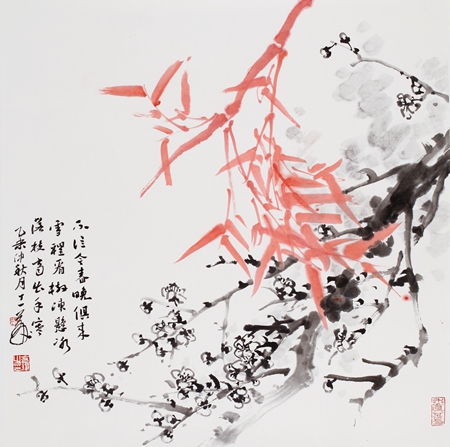 不信今春晚俱来
雪裡看樹凍懸冰
落枝高出手寒
乙未仲秋月